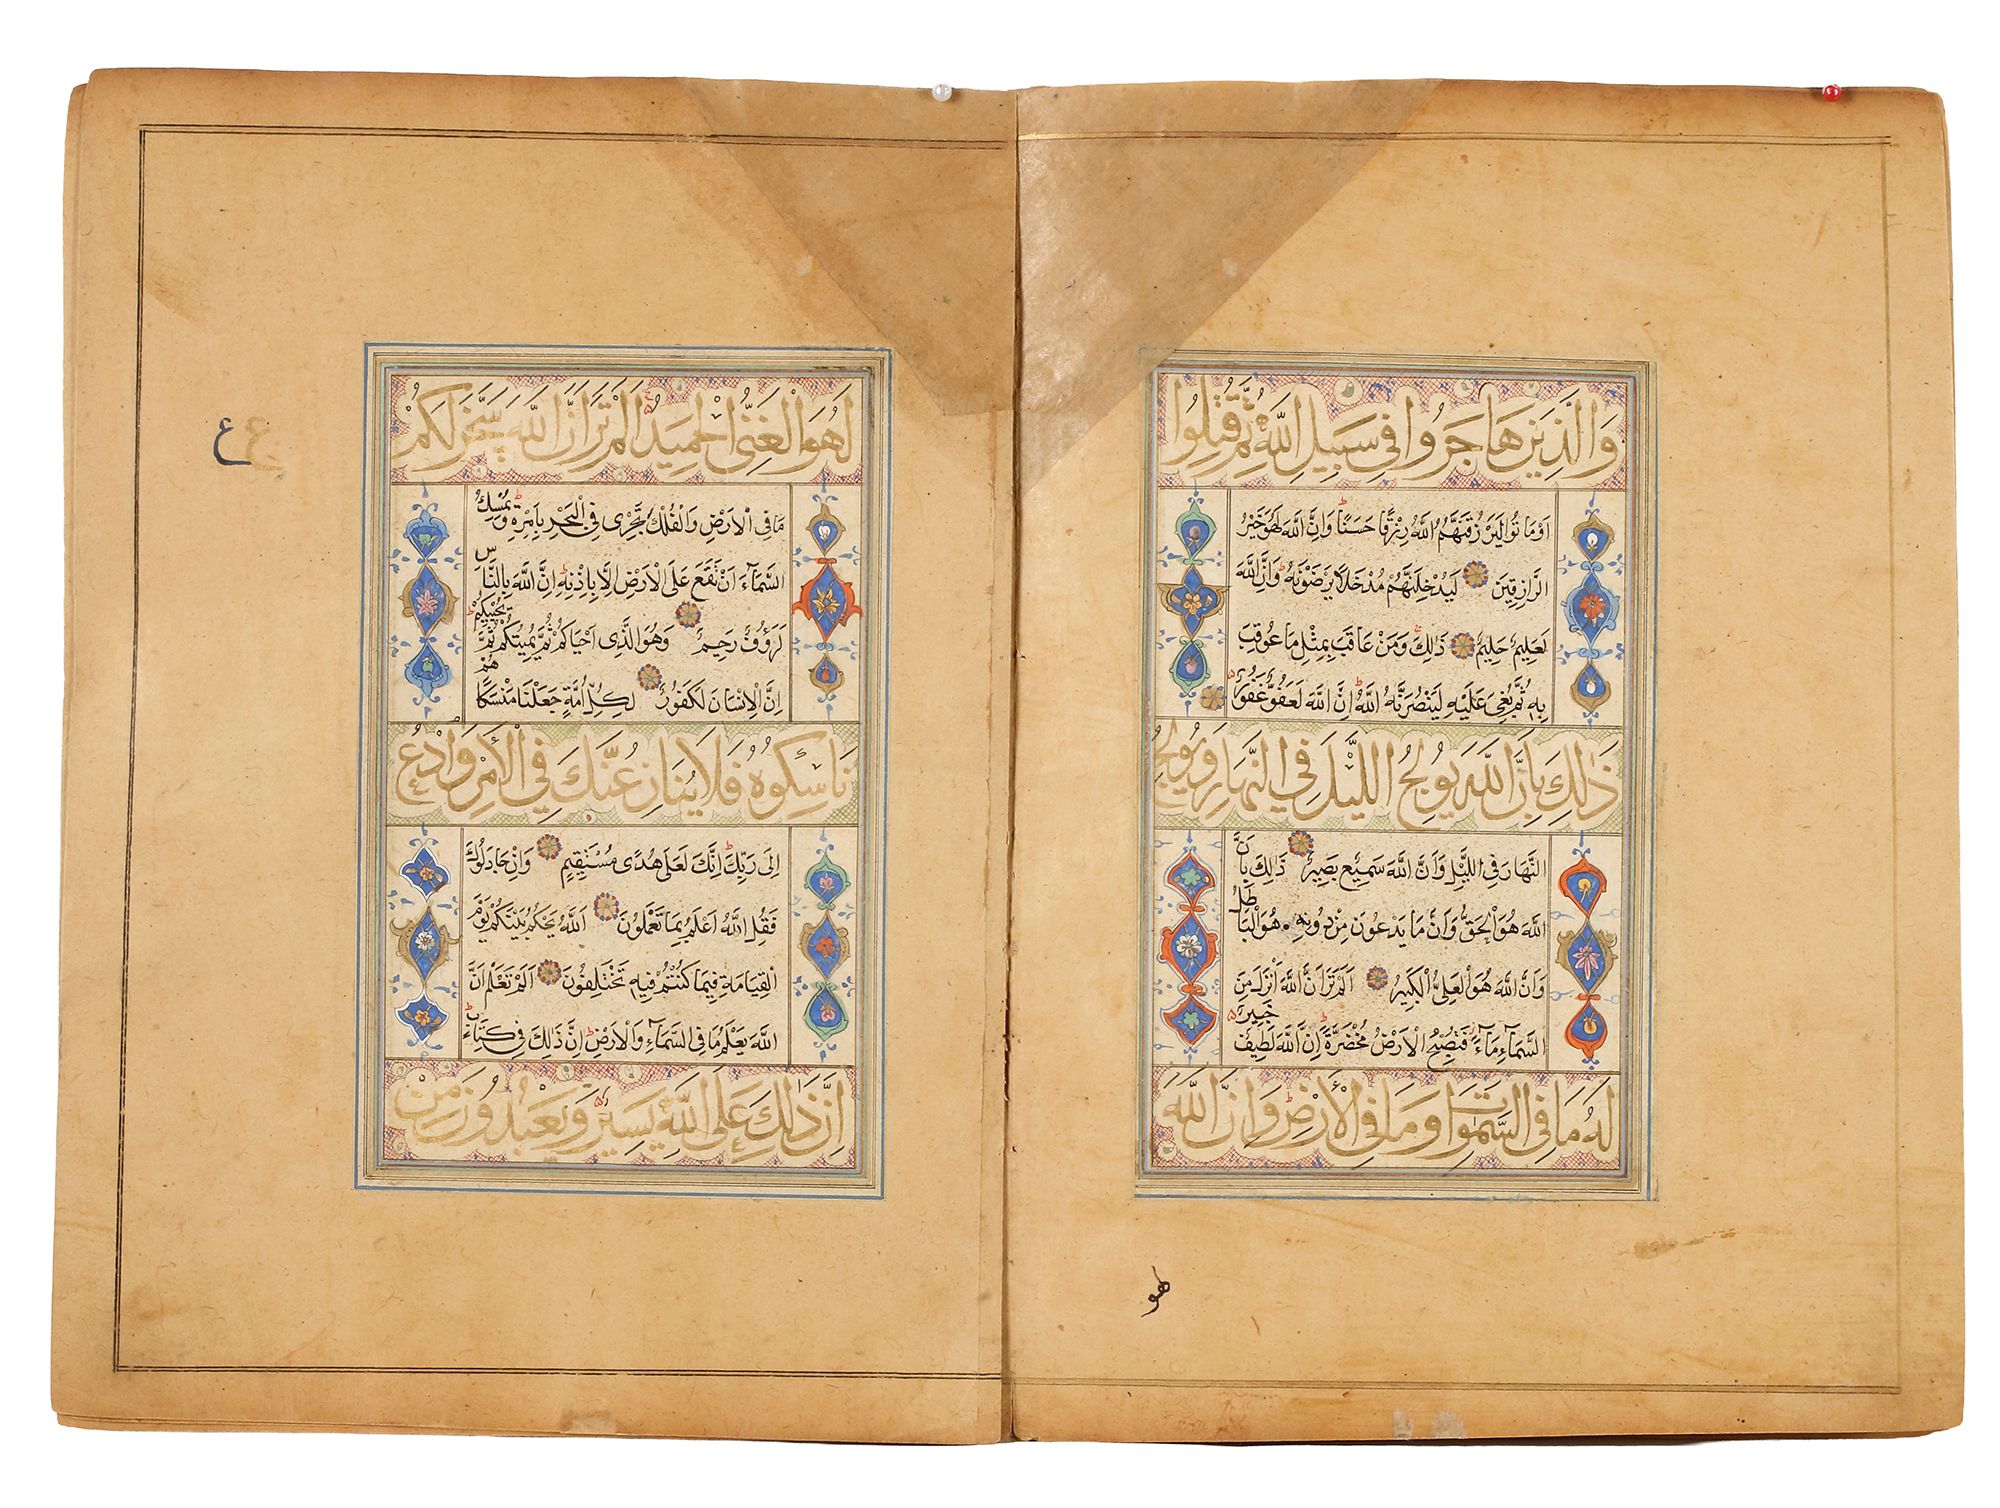 وَالَّذِينَ هَاجَرُوا فِي سَبِيلِ اللَّهِ ثُمَّ قُتِلُوا
اَوْ مَاتُوا لَيَرْزُقَنَّهُمُ اللَّهُ رِزْقًا حَسَنًا وَاِنَّ اللَّهَ لَهُوَ خَيْرُ
الرَّازِقِينَ لَيُدْخِلَنَّهُمْ مُدْخَلًا يَرْضَوْنَهُ وَاِنَّ اللَّهَ
لَعَلِيمٌ حَلِيمٌ ذٰلِكَ وَمَنْ عَاقَبَ بِمِثْلِ مَا عُوقِبَ
بِهِ ثُمَّ بُغِيَ عَلَيْهِ لَيَنْصُرَنَّهُ اللَّهُ اِنَّ اللَّهَ لَعَفُوٌّ غَفُورٌ
ذٰلِكَ بِاَنَّ اللَّهَ يُولِجُ اللَّيْلَ فِي النَّهَارِ وَيُولِجُ
النَّهَارَ فِي اللَّيْلِ وَاَنَّ اللَّهَ سَمِيعٌ بَصِيرٌ ذٰلِكَ بِاَنَّ
اللَّهَ هُوَ الْحَقُّ وَاَنَّ مَا يَدْعُونَ مِنْ دُونِهِ هُوَ الْبَاطِلُ
وَاَنَّ اللَّهَ هُوَ الْعَلِيُّ الْكَبِيرُ اَلَمْ تَرَ اَنَّ اللَّهَ اَنْزَلَ مِنَ
السَّمَاءِ مَاءً فَتُصْبِحُ الْاَرْضُ مُخْضَرَّةً اِنَّ اللَّهَ لَطِيفٌ خَبِيرٌ
لَهُ مَا فِي السَّمٰوَاتِ وَمَا فِي الْاَرْضِ وَاِنَّ اللَّهَ
هو
لَهُوَ الْغَنِيُّ الْحَمِيدُ اَلَمْ تَرَ اَنَّ اللَّهَ سَخَّرَ لَكُمْ
مَا فِي الْاَرْضِ وَالْفُلْكَ تَجْرِي فِي الْبَحْرِ بِاَمْرِهِ وَيُمْسِكُ
السَّمَاءَ اَنْ تَقَعَ عَلَى الْاَرْضِ اِلَّا بِاِذْنِهِ اِنَّ اللَّهَ بِالنَّاسِ
لَرَؤُفٌ رَحِيمٌ وَهُوَ الَّذِي اَحْيَاكُمْ ثُمَّ يُمِيتُكُمْ ثُمَّ يُحْيِيكُمْ
اِنَّ الْاِنْسَانَ لَكَفُورٌ لِكُلِّ اُمَّةٍ جَعَلْنَا مَنْسَكًا هُمْ
نَاسِكُوهُ فَلَا يُنَازِعُنَّكَ فِي الْاَمْرِ وَادْعُ
اِلَى رَبِّكَ اِنَّكَ لَعَلَى هُدًى مُسْتَقِيمٍ وَاِنْ جَادَلُوكَ
فَقُلِ اللَّهُ اَعْلَمُ بِمَا تَعْمَلُونَ اَللَّهُ يَحْكُمُ بَيْنَكُمْ يَوْمَ
الْقِيَامَةِ فِيمَا كُنْتُمْ فِيهِ تَخْتَلِفُونَ اَلَمْ تَعْلَمْ اَنَّ
اللَّهَ يَعْلَمُ مَا فِي السَّمَاءِ وَالْاَرْضِ اِنَّ ذٰلِكَ فِي كِتَابٍ
اِنَّ ذٰلِكَ عَلَى اللَّهِ يَسِيرٌ وَيَعْبُدُونَ مِنْ
ع ع